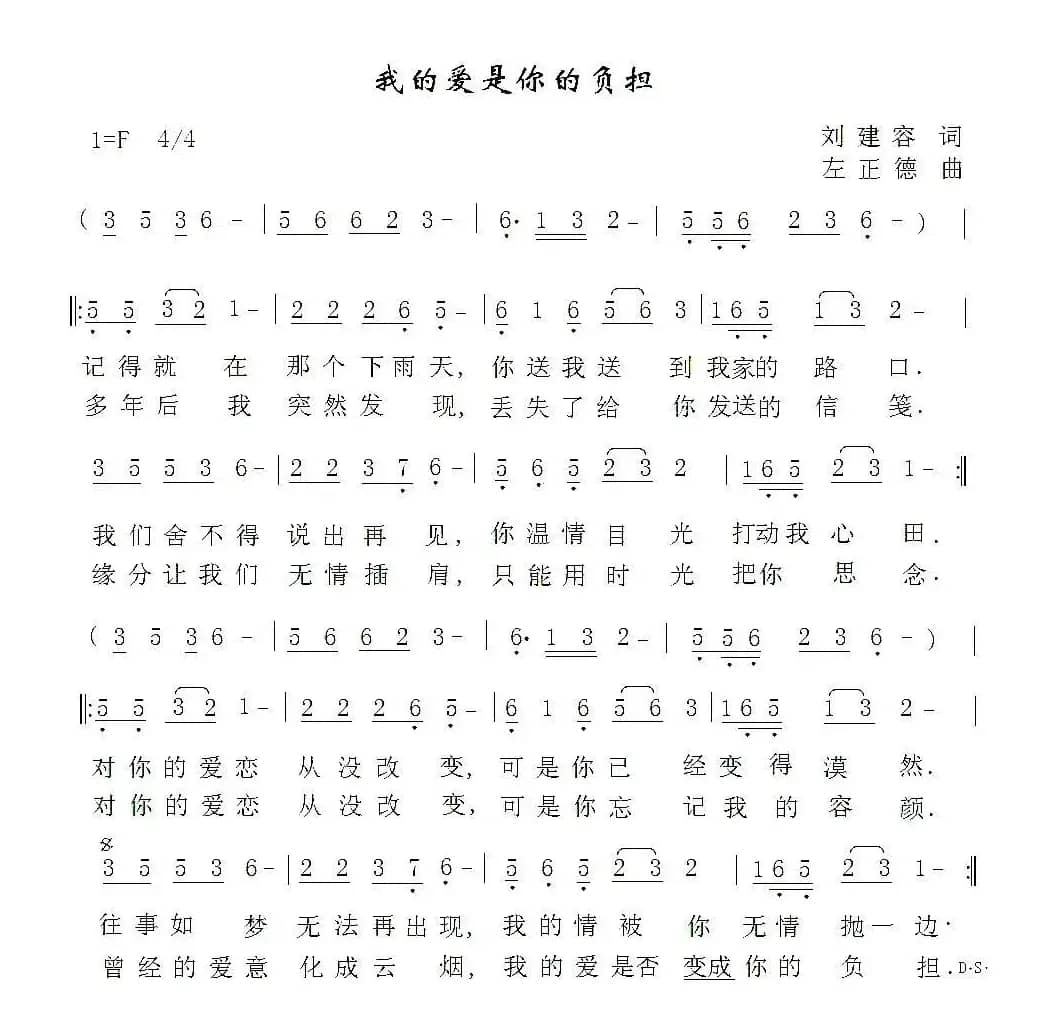 我的爱是你的负担
1=F 4/4
刘建容 词
左正德 曲
( 3 5 3 6 - | 5 6 6 2 3 - | 6· 1 3 2 - | 5 5 6 2 3 6 - ) |
‖: 5 5 3 2 1 - | 2 2 2 6 5 - | 6 1 6 5 6 3 | 1 6 5 1 3 2 - |
记得就 在 那个下雨天, 你送我送 到我家的 路 口.
多年后 我 突然发 现, 丢失了给 你发送的 信 笺.
3 5 5 3 6 - | 2 2 3 7 6 - | 5 6 5 2 3 2 | 1 6 5 2 3 1 - :‖
我们舍不得 说出再 见, 你温情目 光 打动我 心 田.
缘分让我们 无情插 肩, 只能用时 光 把你 思 念.
( 3 5 3 6 - | 5 6 6 2 3 - | 6· 1 3 2 - | 5 5 6 2 3 6 - ) |
‖: 5 5 3 2 1 - | 2 2 2 6 5 - | 6 1 6 5 6 3 | 1 6 5 1 3 2 - |
对你的爱恋 从没改 变, 可是你已 经变得 漠 然.
对你的爱恋 从没改 变, 可是你忘 记我的 容 颜.
𝄋
3 5 5 3 6 - | 2 2 3 7 6 - | 5 6 5 2 3 2 | 1 6 5 2 3 1 - :‖
往事如 梦 无法再出现, 我的情被 你 无情 抛一边·
曾经的爱意 化成云 烟, 我的爱是否 变成你的 负 担. D·S·